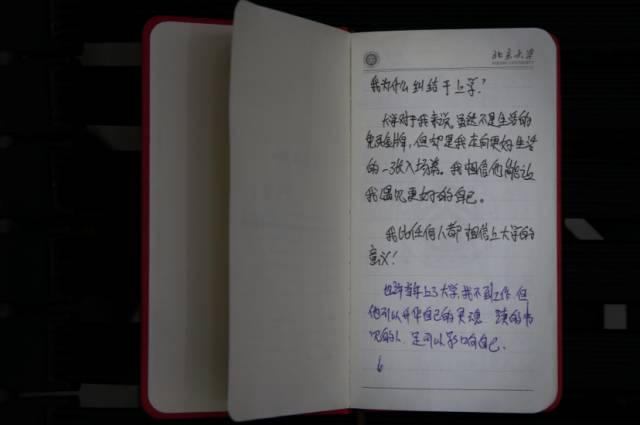 北京大学
PEKING UNIVERSITY
我为什么纠结于上学?
大学对于我来说,虽然不是生活的
免死金牌,但却是我走向更好生活
的一张入场券。我相信他能让
我遇见更好的自己。
我比任何人都相信上大学的
意义!
也许当年上了大学,我不到工作,但
他可以升华自己的灵魂 读的书
见的人 是可以影响自己.